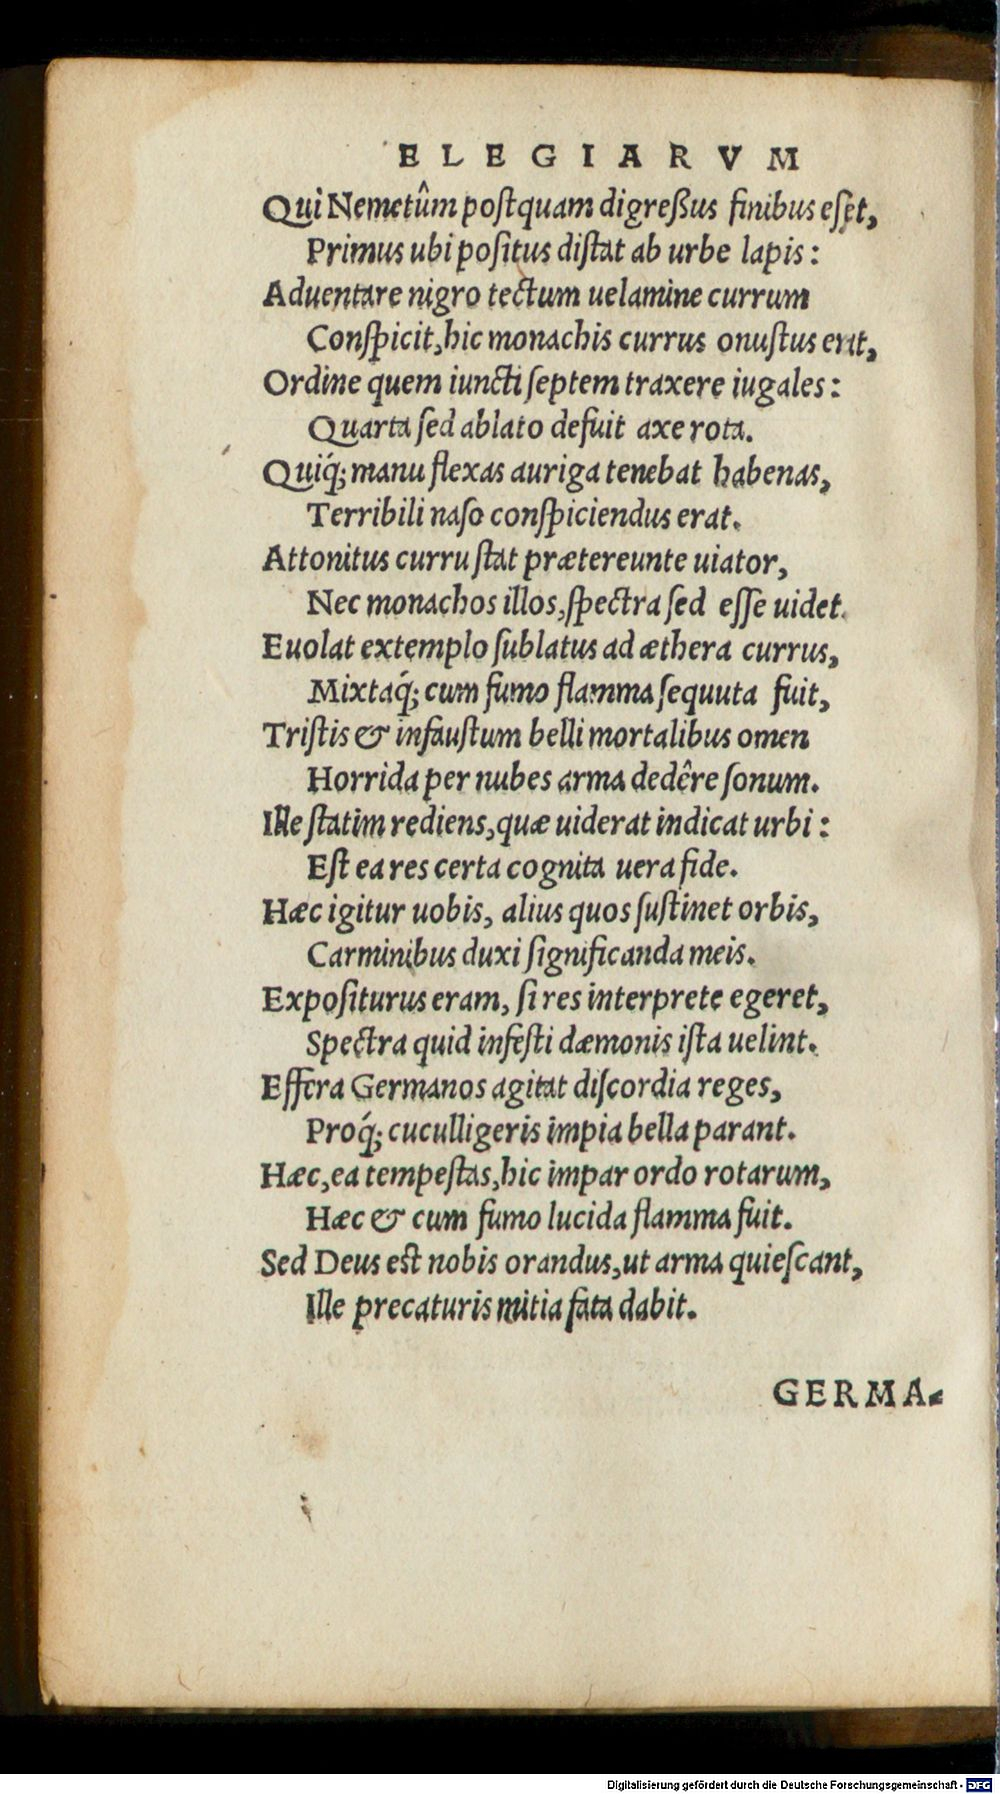 ELEGIARVM
Qui Nemetûm postquam digreßus finibus esset,
Primus ubi positus distat ab urbe lapis:
Aduentare nigro tectum uelamine currum
Conspicit, hic monachis currus onustus erat,
Ordine quem iuncti septem traxere iugales:
Quarta sed ablato defuit axe rota.
Quiq́; manu flexas auriga tenebat habenas,
Terribili naso conspiciendus erat.
Attonitus curru stat prætereunte uiator,
Nec monachos illos, spectra sed esse uidet.
Euolat extemplo sublatus ad æthera currus,
Mixtaq́; cum fumo flamma sequuta fuit,
Tristis & infaustum belli mortalibus omen
Horrida per nubes arma dedêre sonum.
Ille statim rediens, quæ uiderat indicat urbi:
Est ea res certa cognita uera fide.
Hæc igitur uobis, alius quos sustinet orbis,
Carminibus duxi significanda meis.
Expositurus eram, si res interprete egeret,
Spectra quid infesti dæmonis ista uelint.
Effera Germanos agitat discordia reges,
Proq́; cuculligeris impia bella parant.
Hæc, ea tempestas, hic impar ordo rotarum,
Hæc & cum fumo lucida flamma fuit.
Sed Deus est nobis orandus, ut arma quiescant,
Ille precaturis mitia fata dabit.
GERMA-
Digitalisierung gefördert durch die Deutsche Forschungsgemeinschaft - DFG